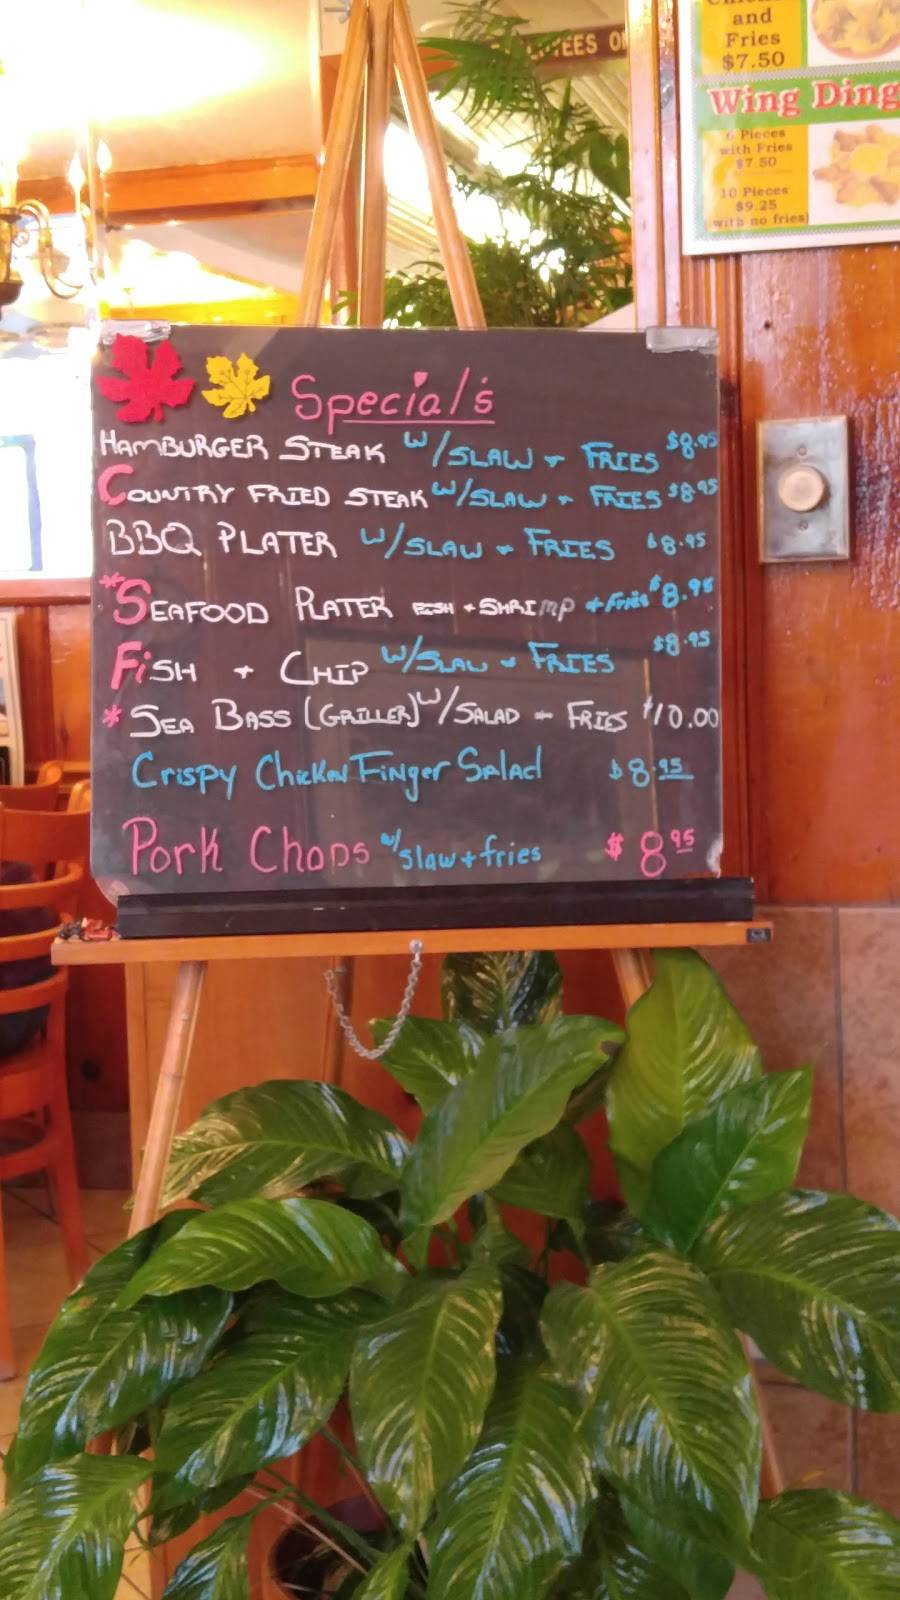 EES O
and
Fries
$7.50
Wing Ding
6 Pieces
with Fries
$7 50
10 Pieces
$9.25
(with no fries)
Special's
HAMBURGER STEAK W/SLAW + FRIES $8.95
COUNTRY FRIED STEAK W/SLAW + FRIES $8.95
BBQ PLATER W/SLAW + FRIES $8.95
*SEAFOOD PLATER FISH + SHRIMP + Fries $8.95
FiSH + CHIP W/SLAW + FRIES $8.95
* SEA BASS (GRILLER) W/SALAD - FRIES $10.00
Crispy Chicken Finger Salad $8.95
Pork Chops w/slaw + fries $8.95